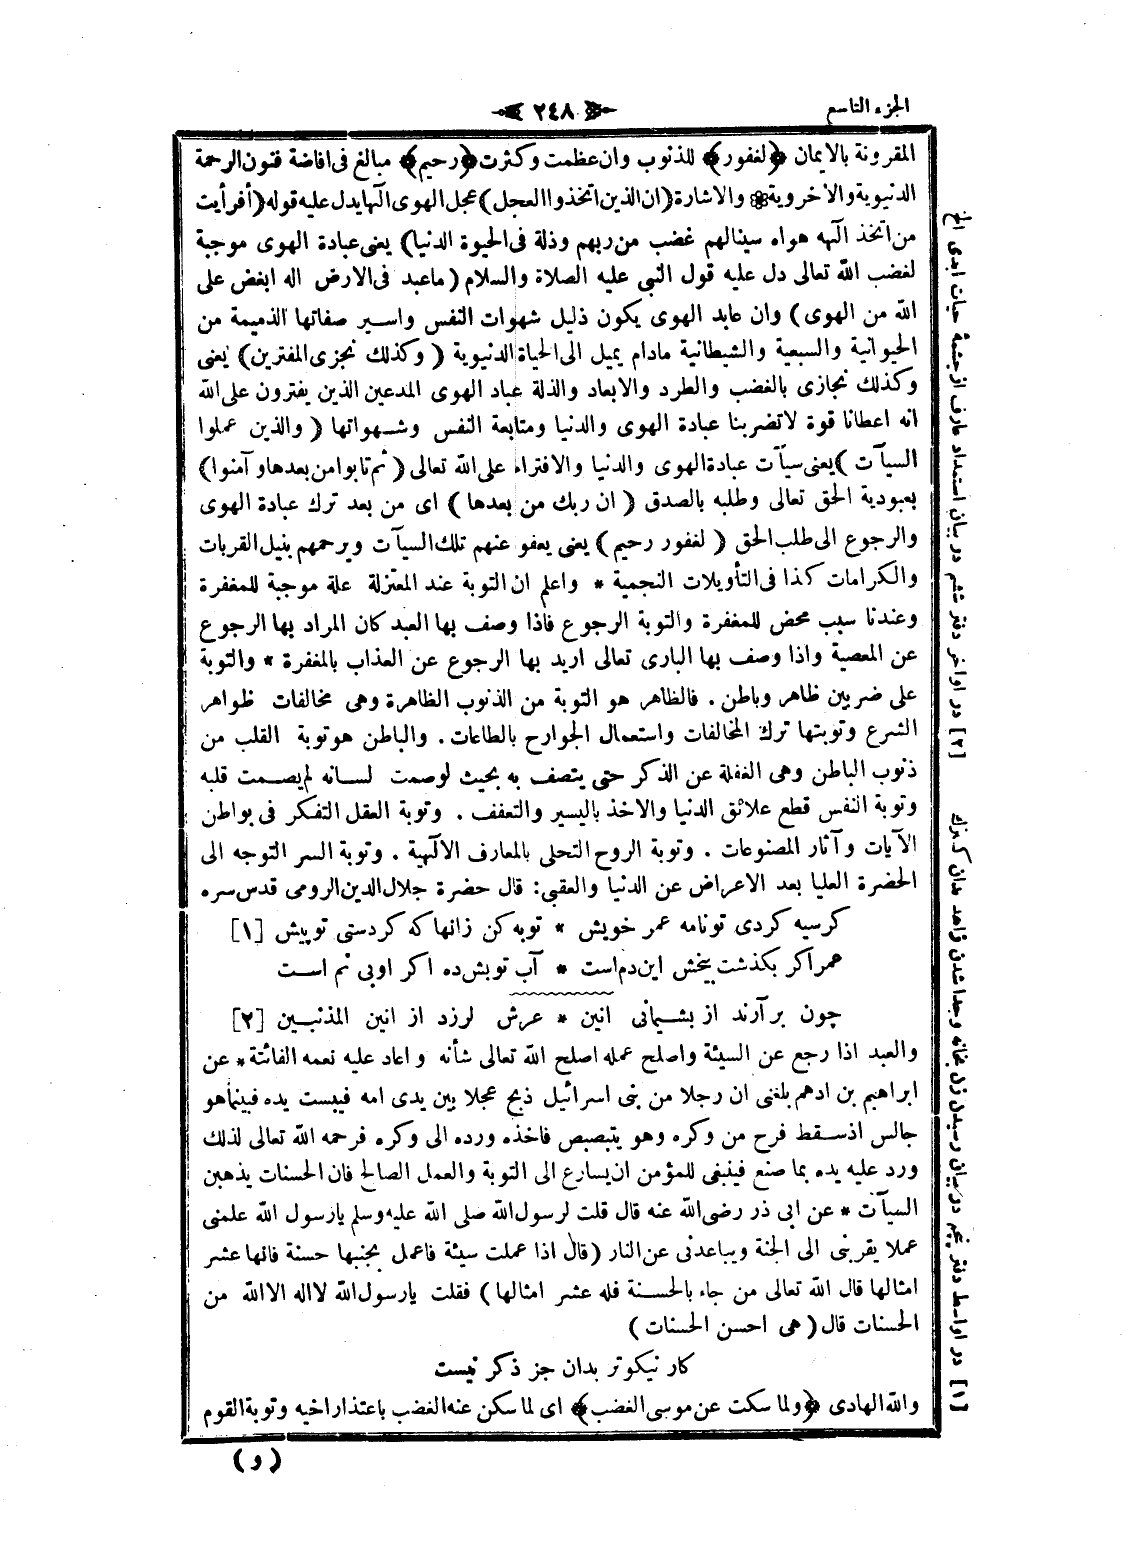 الجزء التاسع
٢٤٨
المقرونة بالايمان ﴿لغفور﴾ للذنوب وان عظمت وكثرت ﴿رحيم﴾ مبالغ فى افاضة فنون الرحمة
الدنيوية والاخروية والاشارة (ان الذين اتخذوا العجل) عجل الهوى آلها يدل عليه قوله (أفرأيت
من اتخذ آلهه هواه سينالهم غضب من ربهم وذلة فى الحيوة الدنيا) يعنى عبادة الهوى موجبة
لغضب الله تعالى دل عليه قول النبي عليه الصلاة والسلام (ماعبد فى الارض اله ابغض على
الله من الهوى) وان عابد الهوى يكون ذليل شهوات النفس واسير صفاتها الذميمة من
الحيوانية والسبعية والشيطانية مادام يميل الى الحياة الدنيوية (وكذلك نجزى المفترين) يعنى
وكذلك نجازى بالغضب والطرد والابعاد والذلة عباد الهوى المدعين الذين يفترون على الله
انه اعطانا قوة لاتضربنا عبادة الهوى والدنيا ومتابعة النفس وشهواتها (والذين عملوا
السيآت) يعنى سيآت عبادة الهوى والدنيا والافتراء على الله تعالى (ثم تابوا من بعدها وآمنوا)
بعبودية الحق تعالى وطلبه بالصدق (ان ربك من بعدها) اى من بعد ترك عبادة الهوى
والرجوع الى طلب الحق (لغفور رحيم) يعنى يعفو عنهم تلك السيآت ويرحمهم بنيل القربات
والكرامات كذا فى التأويلات النجمية * واعلم ان التوبة عند المعتزلة علة موجبة للمغفرة
وعندنا سبب محض للمغفرة والتوبة الرجوع فاذا وصف بها العبد كان المراد بها الرجوع
عن المعصية واذا وصف بها البارى تعالى اريد بها الرجوع عن العذاب بالمغفرة * والتوبة
على ضربين ظاهر وباطن . فالظاهر هو التوبة من الذنوب الظاهرة وهى مخالفات ظواهر
الشرع وتوبتها ترك المخالفات واستعمال الجوارح بالطاعات . والباطن هو توبة القلب من
ذنوب الباطن وهى الغفلة عن الذكر حتى يتصف به بحيث لوصمت لسانه لم يصمت قلبه
وتوبة النفس قطع علائق الدنيا والاخذ باليسير والتعفف . وتوبة العقل التفكر فى بواطن
الآيات وآثار المصنوعات . وتوبة الروح التحلى بالمعارف الالٓهية . وتوبة السر التوجه الى
الحضرة العليا بعد الاعراض عن الدنيا والعقبى: قال حضرة جلال الدين الرومى قدس سره
كرسيه كردى تونامه عمر خويش * توبه كن زانها كه كردستى توپيش [١]
عمر اكر بكذشت بيخش اين دم است * آب توبش ده اكر اوبى نم است
چون بر آرند از پشيمانى انين * عرش لرزد از انين المذنبين [٢]
والعبد اذا رجع عن السيئة واصلح عمله اصلح الله تعالى شأنه واعاد عليه نعمه الفائتة * عن
ابراهيم بن ادهم بلغنى ان رجلا من بنى اسرائيل ذبح عجلا بين يدى امه فيبست يده فبينما هو
جالس اذ سقط فرخ من وكره وهو يتبصبص فاخذه ورده الى وكره فرحمه الله تعالى لذلك
ورد عليه يده بما صنع فينبغى للمؤمن ان يسارع الى التوبة والعمل الصالح فان الحسنات يذهبن
السيآت * عن ابى ذر رضى الله عنه قال قلت لرسول الله صلى الله عليه وسلم يارسول الله علمنى
عملا يقربنى الى الجنة ويباعدنى عن النار (قال اذا عملت سيئة فاعمل بجنبها حسنة فانها عشر
امثالها قال الله تعالى من جاء بالحسنة فله عشر امثالها) فقلت يارسول الله لااله الاالله من
الحسنات قال (هى احسن الحسنات)
كار نيكوتر بدان جز ذكر نيست
والله الهادى ﴿ولما سكت عن موسى الغضب﴾ اى لما سكن عنه الغضب باعتذار اخيه وتوبة القوم
(و)
[١] در اواسط دفتر پنجم در بيان رسيدن زن بخانه وجدا شدن زاهد ان كنيزك
[٢] در اواخر دفتر ششم در بيان استمداد عارف ازچشمهٔ حيات ابدى الخ